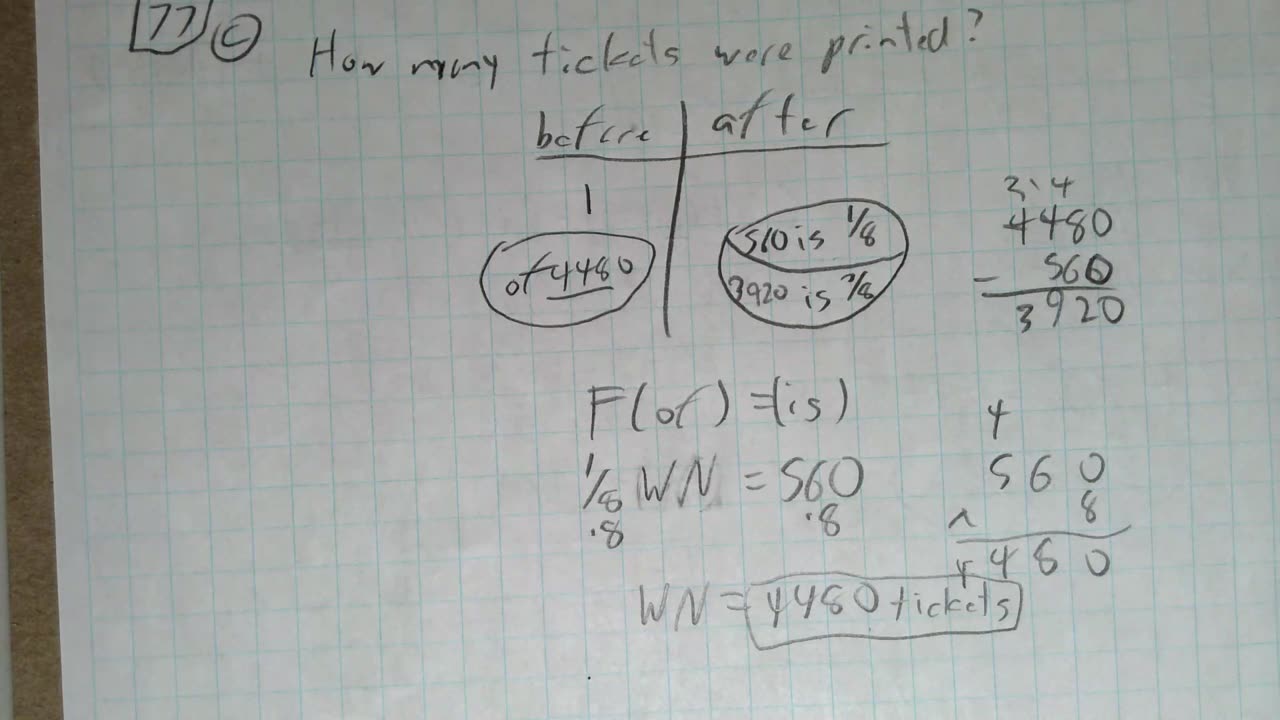 77 C How many tickets were printed?
before | after
1
of 4480
560 is 1/8
3920 is 7/8
3 1 4
4480
- 560
3920
F(of) = (is)
1/8 WN = 560
·8 ·8
WN = 4480 tickets
4
560
x 8
4480